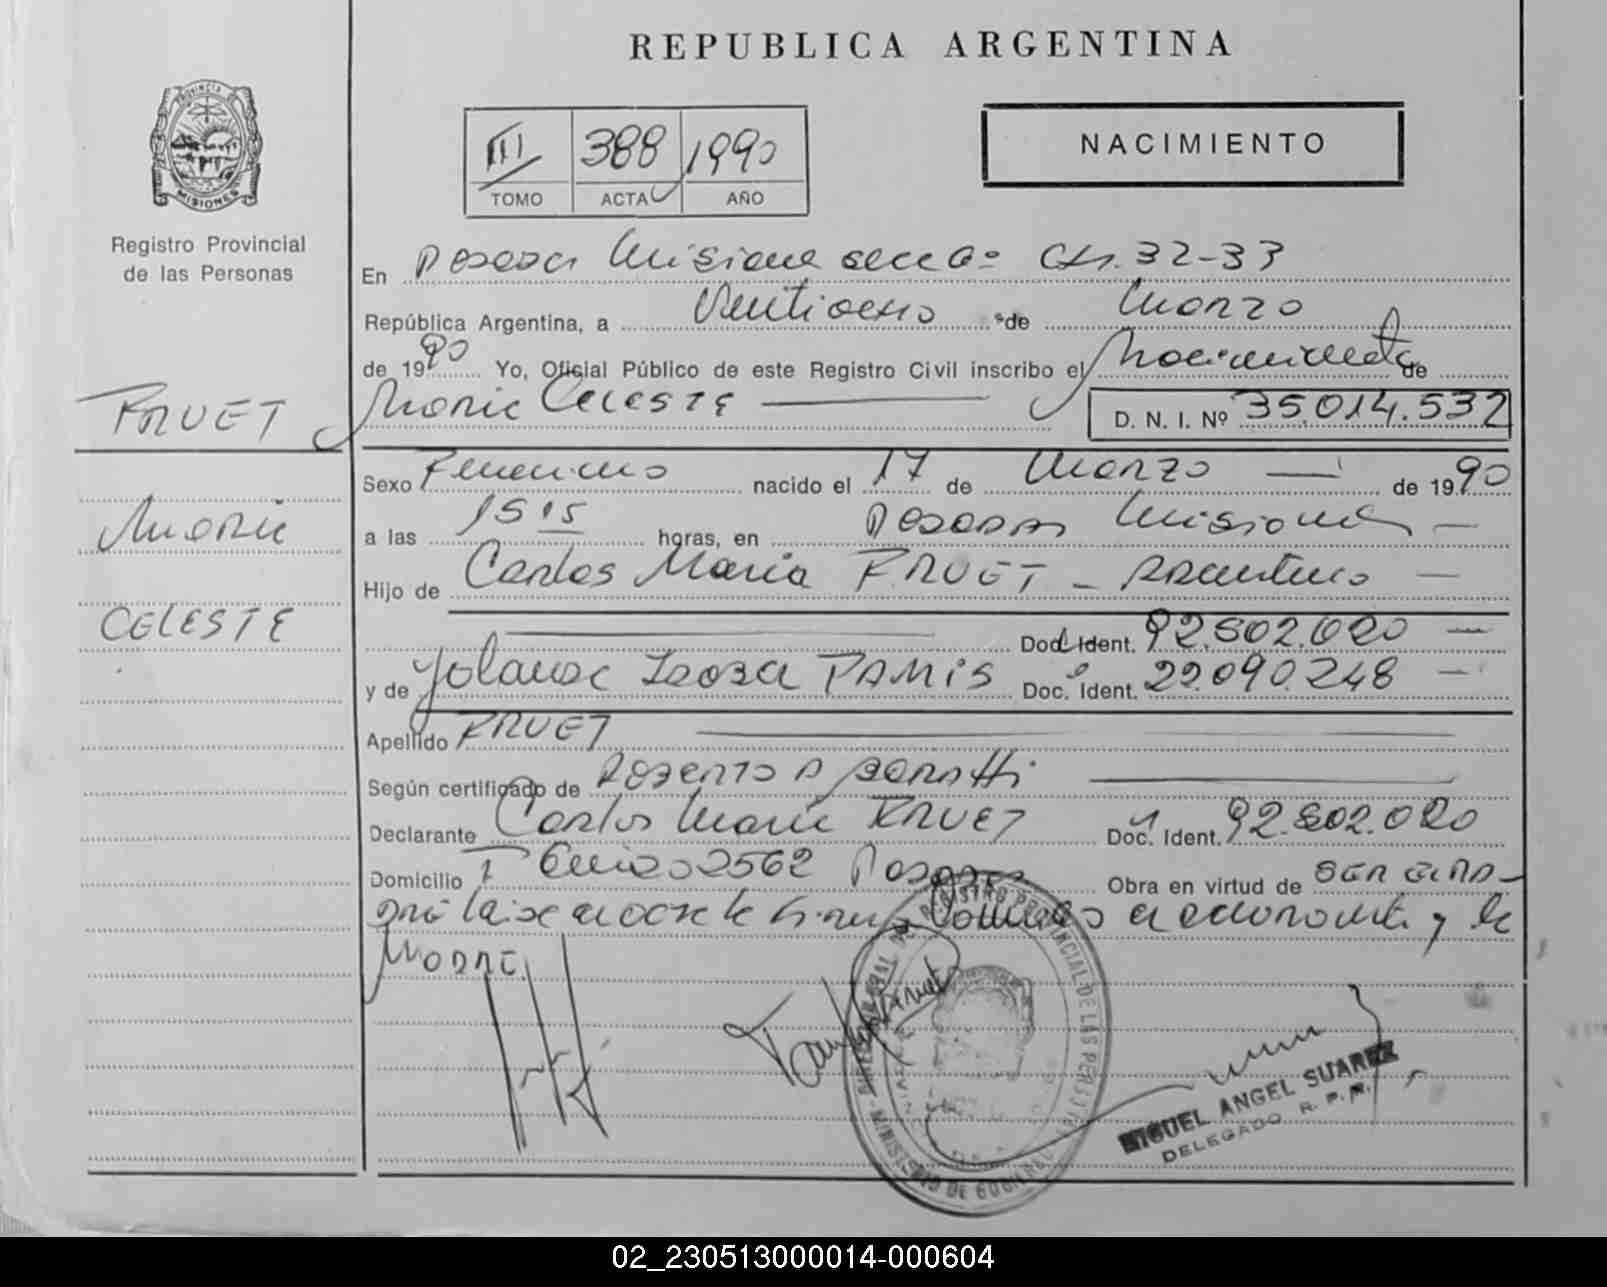 REPUBLICA ARGENTINA
PROVINCIA DE
MISIONES
Registro Provincial
de las Personas
III 388 1990
TOMO ACTA AÑO
NACIMIENTO
En Posadas Misiones secc 6a Cts. 32-33
República Argentina, a Veintiocho de Marzo
de 1990 Yo, Oficial Público de este Registro Civil inscribo el Nacimiento de
Maria Celeste D. N. I. Nº 35.014.532
FRUET
Maria
CELESTE
Sexo Femenino nacido el 17 de Marzo de 1990
a las 15 15 horas, en Posadas Misiones
Hijo de Carlos Maria FRUET - Argentino
Doc. Ident. 92.802.020
y de Yolanda Rosa RAMIS Doc. Ident. 22.090.248
Apellido FRUET
Según certificado de Roberto A
Declarante Carlos Maria FRUET Doc. Ident. 92.802.020
Domicilio 2562 Posadas Obra en virtud de SER EL PA-
DRE y la
MADRE
MIGUEL ANGEL SUAREZ
DELEGADO R. P. P.
02_230513000014-000604